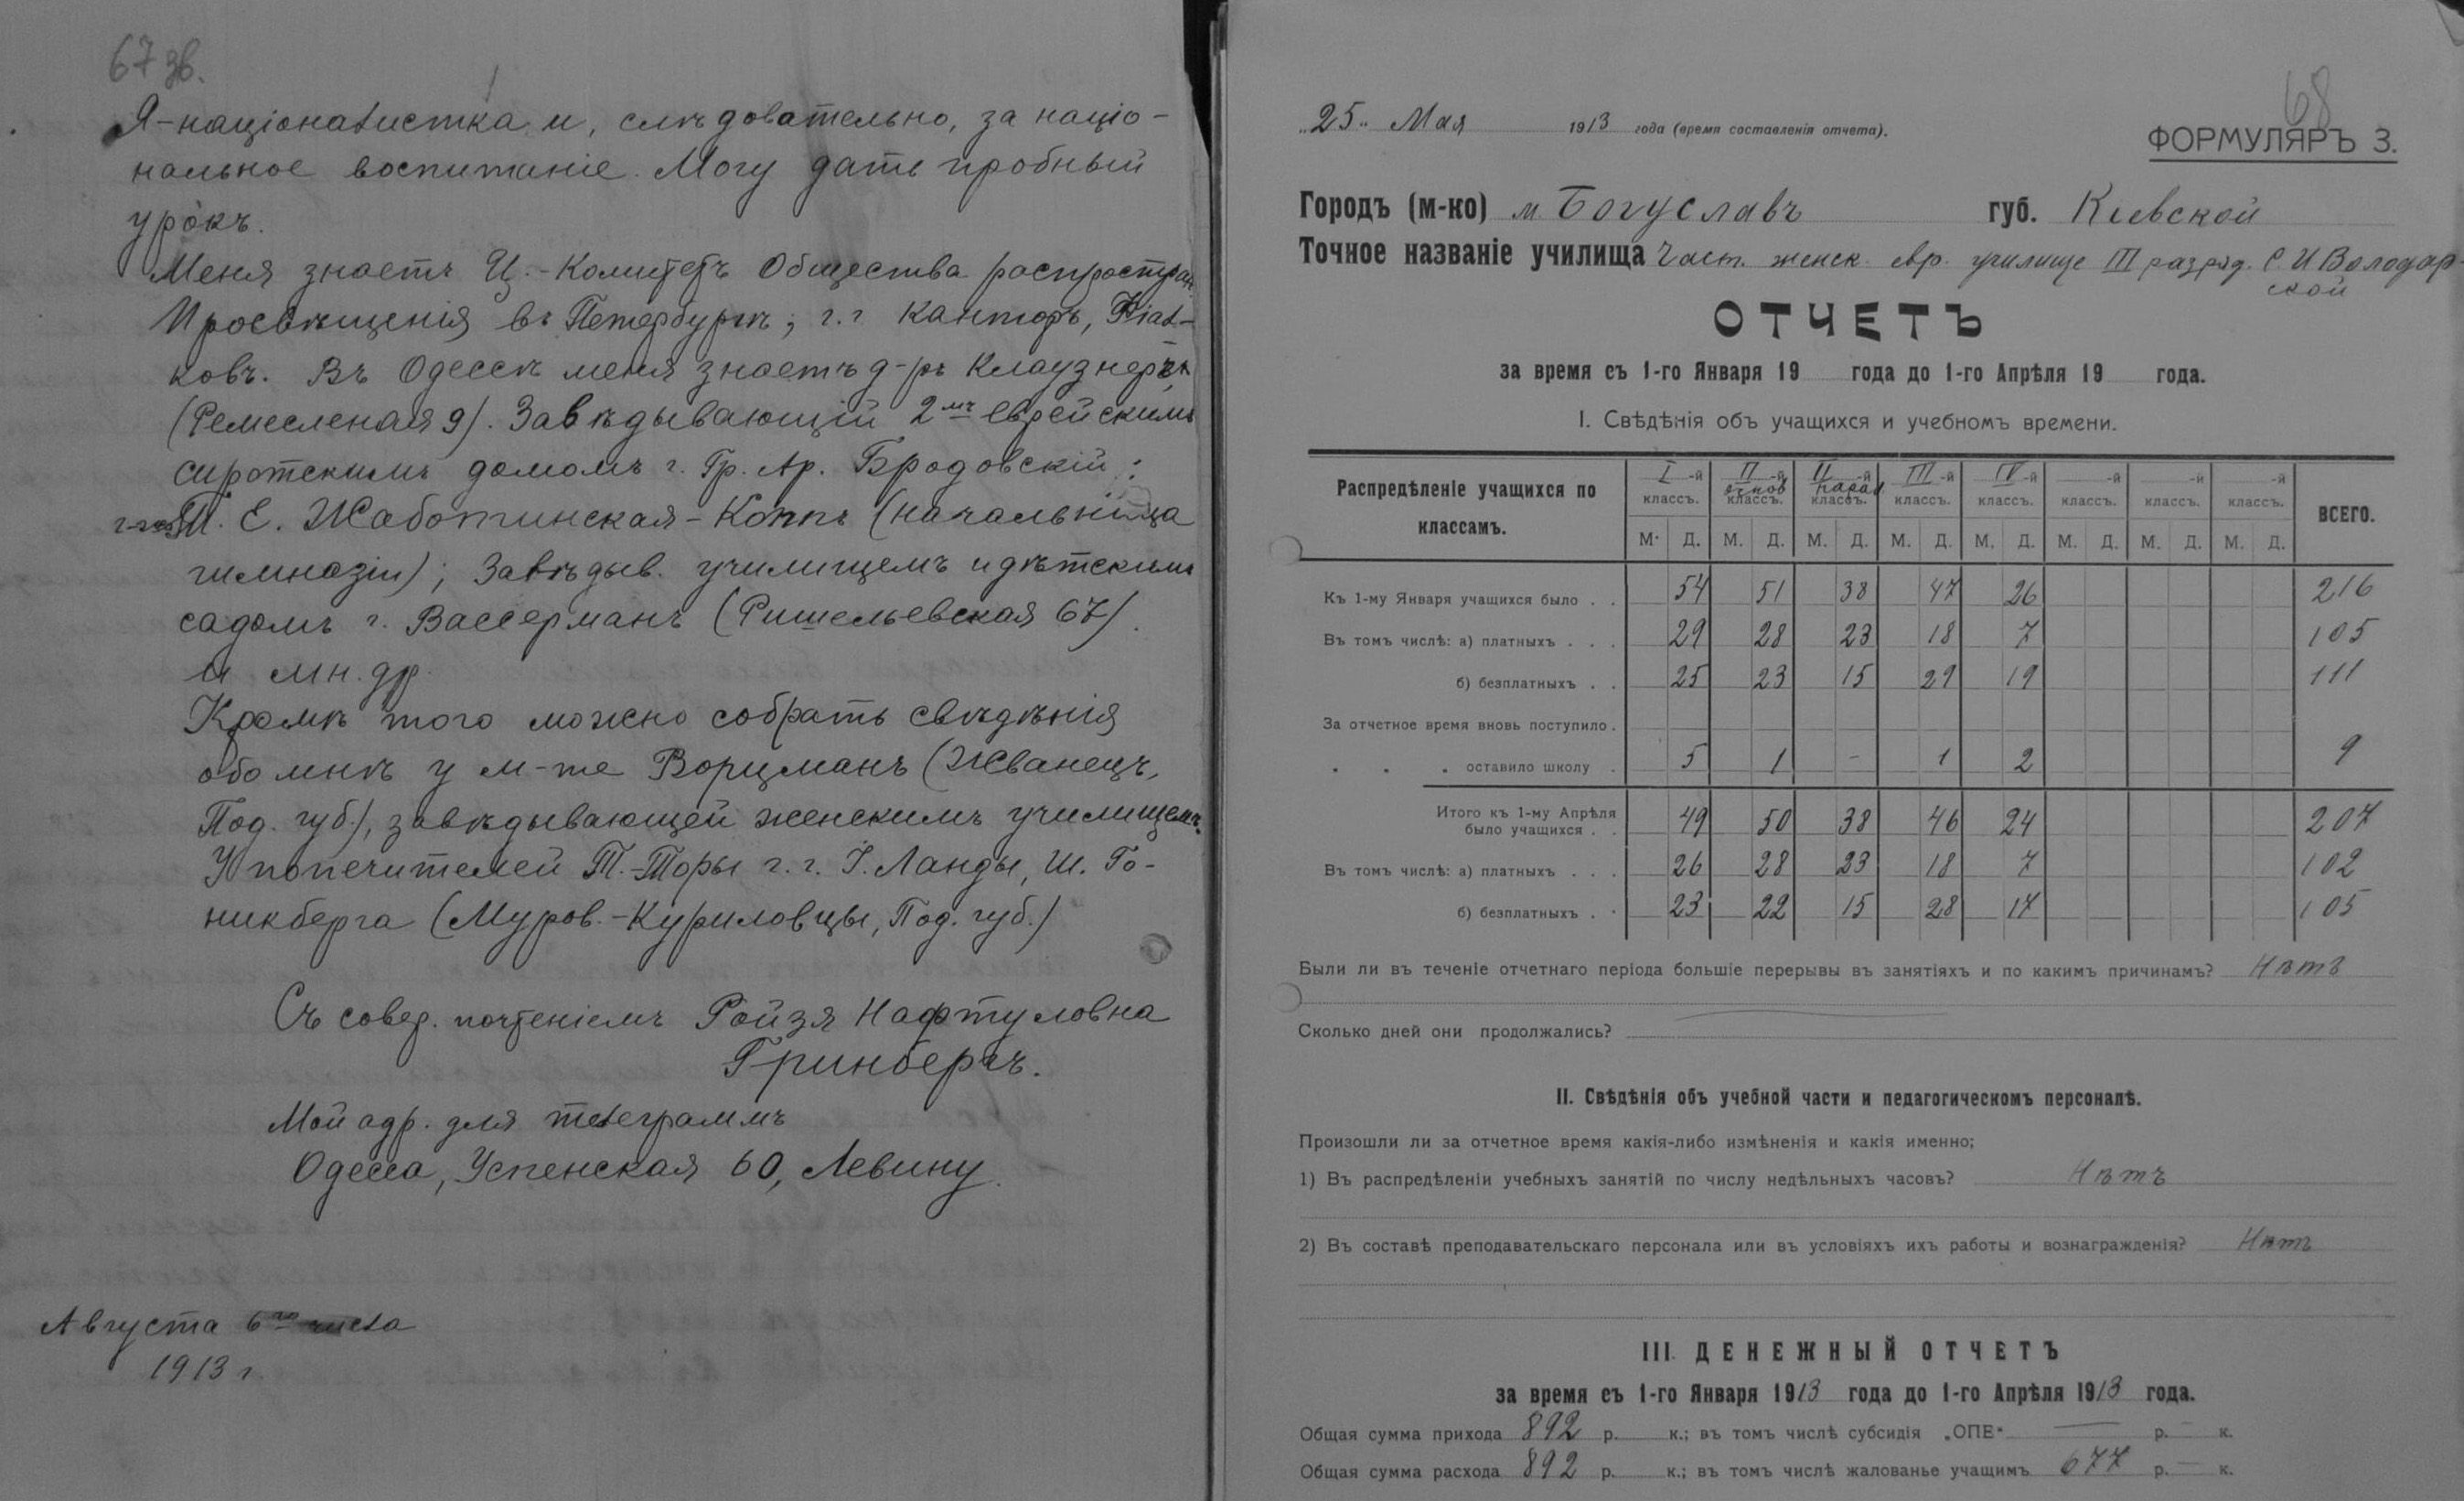 67 зв.
Я-націоналистка и, слѣдовательно, за націо-
нальное воспитаніе. Могу дать пробный
урокъ.
Меня знаетъ Ц.-Комитетъ Общества распростран.
Просвѣщенія въ Петербургѣ; г.г Канторъ, Фіал-
ковъ. Въ Одессѣ меня знаетъ д-ръ Клаузнеръ
(Ремесленая 9). Завѣдывающій 2мъ еврейскимъ
сиротскимъ домомъ г. Гр. Ар. Бродовскій;
г-жа Т. Е. Жаботинская-Коппъ (начальница
гимназіи); Завѣдыв. училищемъ и дѣтскимъ
садомъ г. Вассерманъ (Ришельевская 67).
и мн. др.
Кромѣ того можно собрать свѣдѣнія
обо мнѣ у м-me Ворцманъ (Жванецъ,
Под. губ.), завѣдывающей женскимъ училищемъ.
У попечителей Т.-Торы г. г. І. Ланды, Ш. Го-
никберга (Муров.-Куриловцы, Под. губ.)
Съ совер. почтеніемъ Ройзя Нафтуловна
Гринбергъ.
Мой адр. для телеграммъ
Одесса, Успенская 60, Левину.
Августа 6го числа
1913 г.
68
„25„ Мая 1913 года (время составленія отчета).
ФОРМУЛЯРЪ 3.
Городъ (м-ко) м. Богуславъ губ. Кіевской
Точное названіе училища Част. женск. евр. училище III разряд. С. И Володар-
ской
ОТЧЕТЪ
за время съ 1-го Января 19 года до 1-го Апрѣля 19 года.
I. Свѣдѣнія объ учащихся и учебномъ времени.
Распредѣленіе учащихся по классамъ. I-й классъ. II-й основ классъ. II-й парал. классъ. III-й классъ. IV-й классъ. -й классъ. -й классъ. -й классъ. ВСЕГО.
М. Д. М. Д. М. Д. М. Д. М. Д. М. Д. М. Д. М. Д.
Къ 1-му Января учащихся было . . 54 51 38 47 26 216
Въ томъ числѣ: а) платныхъ . . . 29 28 23 18 7 105
б) безплатныхъ . . 25 23 15 29 19 111
За отчетное время вновь поступило .
„ „ „ оставило школу . 5 1 - 1 2 9
Итого къ 1-му Апрѣля
было учащихся . . 49 50 38 46 24 207
Въ томъ числѣ: а) платныхъ . . . 26 28 23 18 7 102
б) безплатныхъ . . 23 22 15 28 17 105
Были ли въ теченіе отчетнаго періода большіе перерывы въ занятіяхъ и по какимъ причинамъ? Нѣтъ
Сколько дней они продолжались?
II. Свѣдѣнія объ учебной части и педагогическомъ персоналѣ.
Произошли ли за отчетное время какія-либо измѣненія и какія именно;
1) Въ распредѣленіи учебныхъ занятій по числу недѣльныхъ часовъ? Нѣтъ
2) Въ составѣ преподавательскаго персонала или въ условіяхъ ихъ работы и вознагражденія? Нѣтъ
III. ДЕНЕЖНЫЙ ОТЧЕТЪ
за время съ 1-го Января 1913 года до 1-го Апрѣля 1913 года.
Общая сумма прихода 892 р. к.; въ томъ числѣ субсидія „ОПЕ“ — р. — к.
Общая сумма расхода 892 р. к.; въ томъ числѣ жалованье учащимъ 677 р. — к.